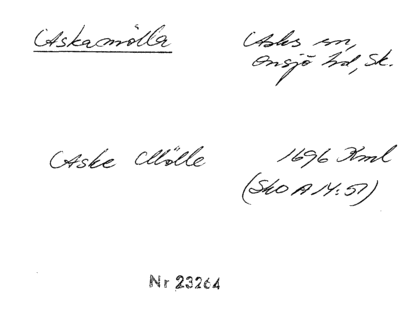 Askamölla
Asks sn,
Onsjö hd, Sk.
Aske Mölle
1696 Kml
(SkO A 14:51)
Nr 23264